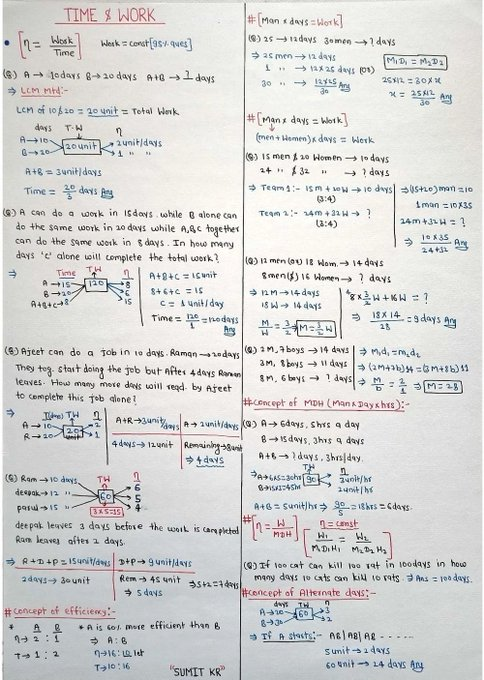 TIME & WORK
[η = Work/Time] Work = const [95% ques]
(Q) A → 10days B → 20 days A+B → ? days
⇒ LCM Mtd:-
LCM of 10 & 20 = 20 unit = Total Work
days T·W η
A → 10 20 unit 2 unit/days
B → 20 1 " "
A+B = 3unit/days
Time = 20/3 days Ans
(Q) A can do a work in 15days while B alone can
do the same work in 20 days while A,B,C together
can do the same work in 8 days. In how many
days 'c' alone will complete the total work?
⇒ Time TW η
A → 15 120 8
B → 20 6
A+B+C → 8 15
A+B+C = 15unit
8+6+C = 15
C = 1 unit/day
Time = 120/1 = 120days
Ans
(Q) Ajeet can do a job in 10 days. Raman → 20days
They tog. start doing the job but after 4 days Raman
leaves. How many more days will reqd. by Ajeet
to complete this job alone?
⇒ T(days) TW η
A → 10 20 unit 2
R → 20 1
A+R → 3unit/days
A → 2unit/days
4days → 12unit
Remaining → 8unit
⇒ 4 days
(Q) Ram → 10 days TW η 6
deepak → 12 " 60 5
parul → 15 " 3×5=15 4
deepak leaves 3 days before the work is completed
Ram leaves after 2 days.
⇒ R+D+P = 15unit/days
D+P → 9 unit/days
2days → 30unit
Rem → 45 unit
⇒ 5 days
⇒ 5+2 = 7days
#concept of efficiency:-
* A B
η → 2 : 1
T → 1 : 2
* A is 60% more efficient than B
⇒ A : B
η → 16 : 10 let
T → 10 : 16
"SUMIT KR"
#[Man × days = Work]
(Q) 25 → 12days 30men → ? days
⇒ 25men → 12days
1 " → 12×25 days (or)
30 " → 12×25/30 Ans
M₁D₁ = M₂D₂
25×12 = 30×x
x = 25×12/30 Ans
#[Man × days = Work]
(men+Women) × days = Work
(Q) 15 men & 20 Women → 10 days
24 " & 32 " → ? days
⇒ Team 1:- 15m+20W → 10 days
(3:4)
Team 2:- 24m+32W → ?
(3:4)
⇒ (15+20)man = 10
1man = 10×35
24m+32W = ?
⇒ 10×35/24+32 Ans
(Q) 12 men (or) 18 Wom. → 14 days
8men (&) 16 Women → ? days
⇒ 12M → 14days
18W → 14 days
M/W = 3/2 ⇒ M = 3/2 W
8×3/2 W+16W = ?
⇒ 18×14/28 = 9 days Ans
(Q) 2M, 7boys → 14 days
3M, 8boys → 11 days
8M, 6 boys → ? days
⇒ M₁d₁ = m₂d₂
⇒ (2M+7b)14 = (3M+8b)11
⇒ M/b = 2/1 ⇒ M = 2B
#concept of MDH (Man×Day×hrs):-
(Q) A → 6days, 5hrs a day
B → 15days, 3hrs a days
A+B → ? days, 3hrs/day.
TW η
⇒ A → 6×5=30hr 90 3unit/hr
B → 15×3=45hr 2unit/hr
A+B = 5unit/hr ⇒ 90/5 = 18hrs = 6days.
#[η = W/MDH] [η = const
W₁/M₁D₁H₁ = W₂/M₂D₂H₂]
(Q) If 100 cat can kill 100 rat in 100days in how
many days 10 cats can kill 10 rats. ⇒ Ans = 100 days.
#concept of Alternate days:-
days TW η
A → 20 60 3
B → 30 2
⇒ If A starts:- AB|AB|AB -----
5unit → 2days
60unit → 24 days Ans